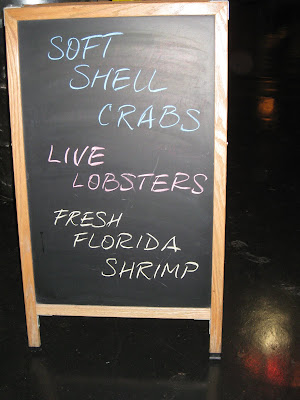 SOFT
SHELL
CRABS
LIVE
LOBSTERS
FRESH
FLORIDA
SHRIMP